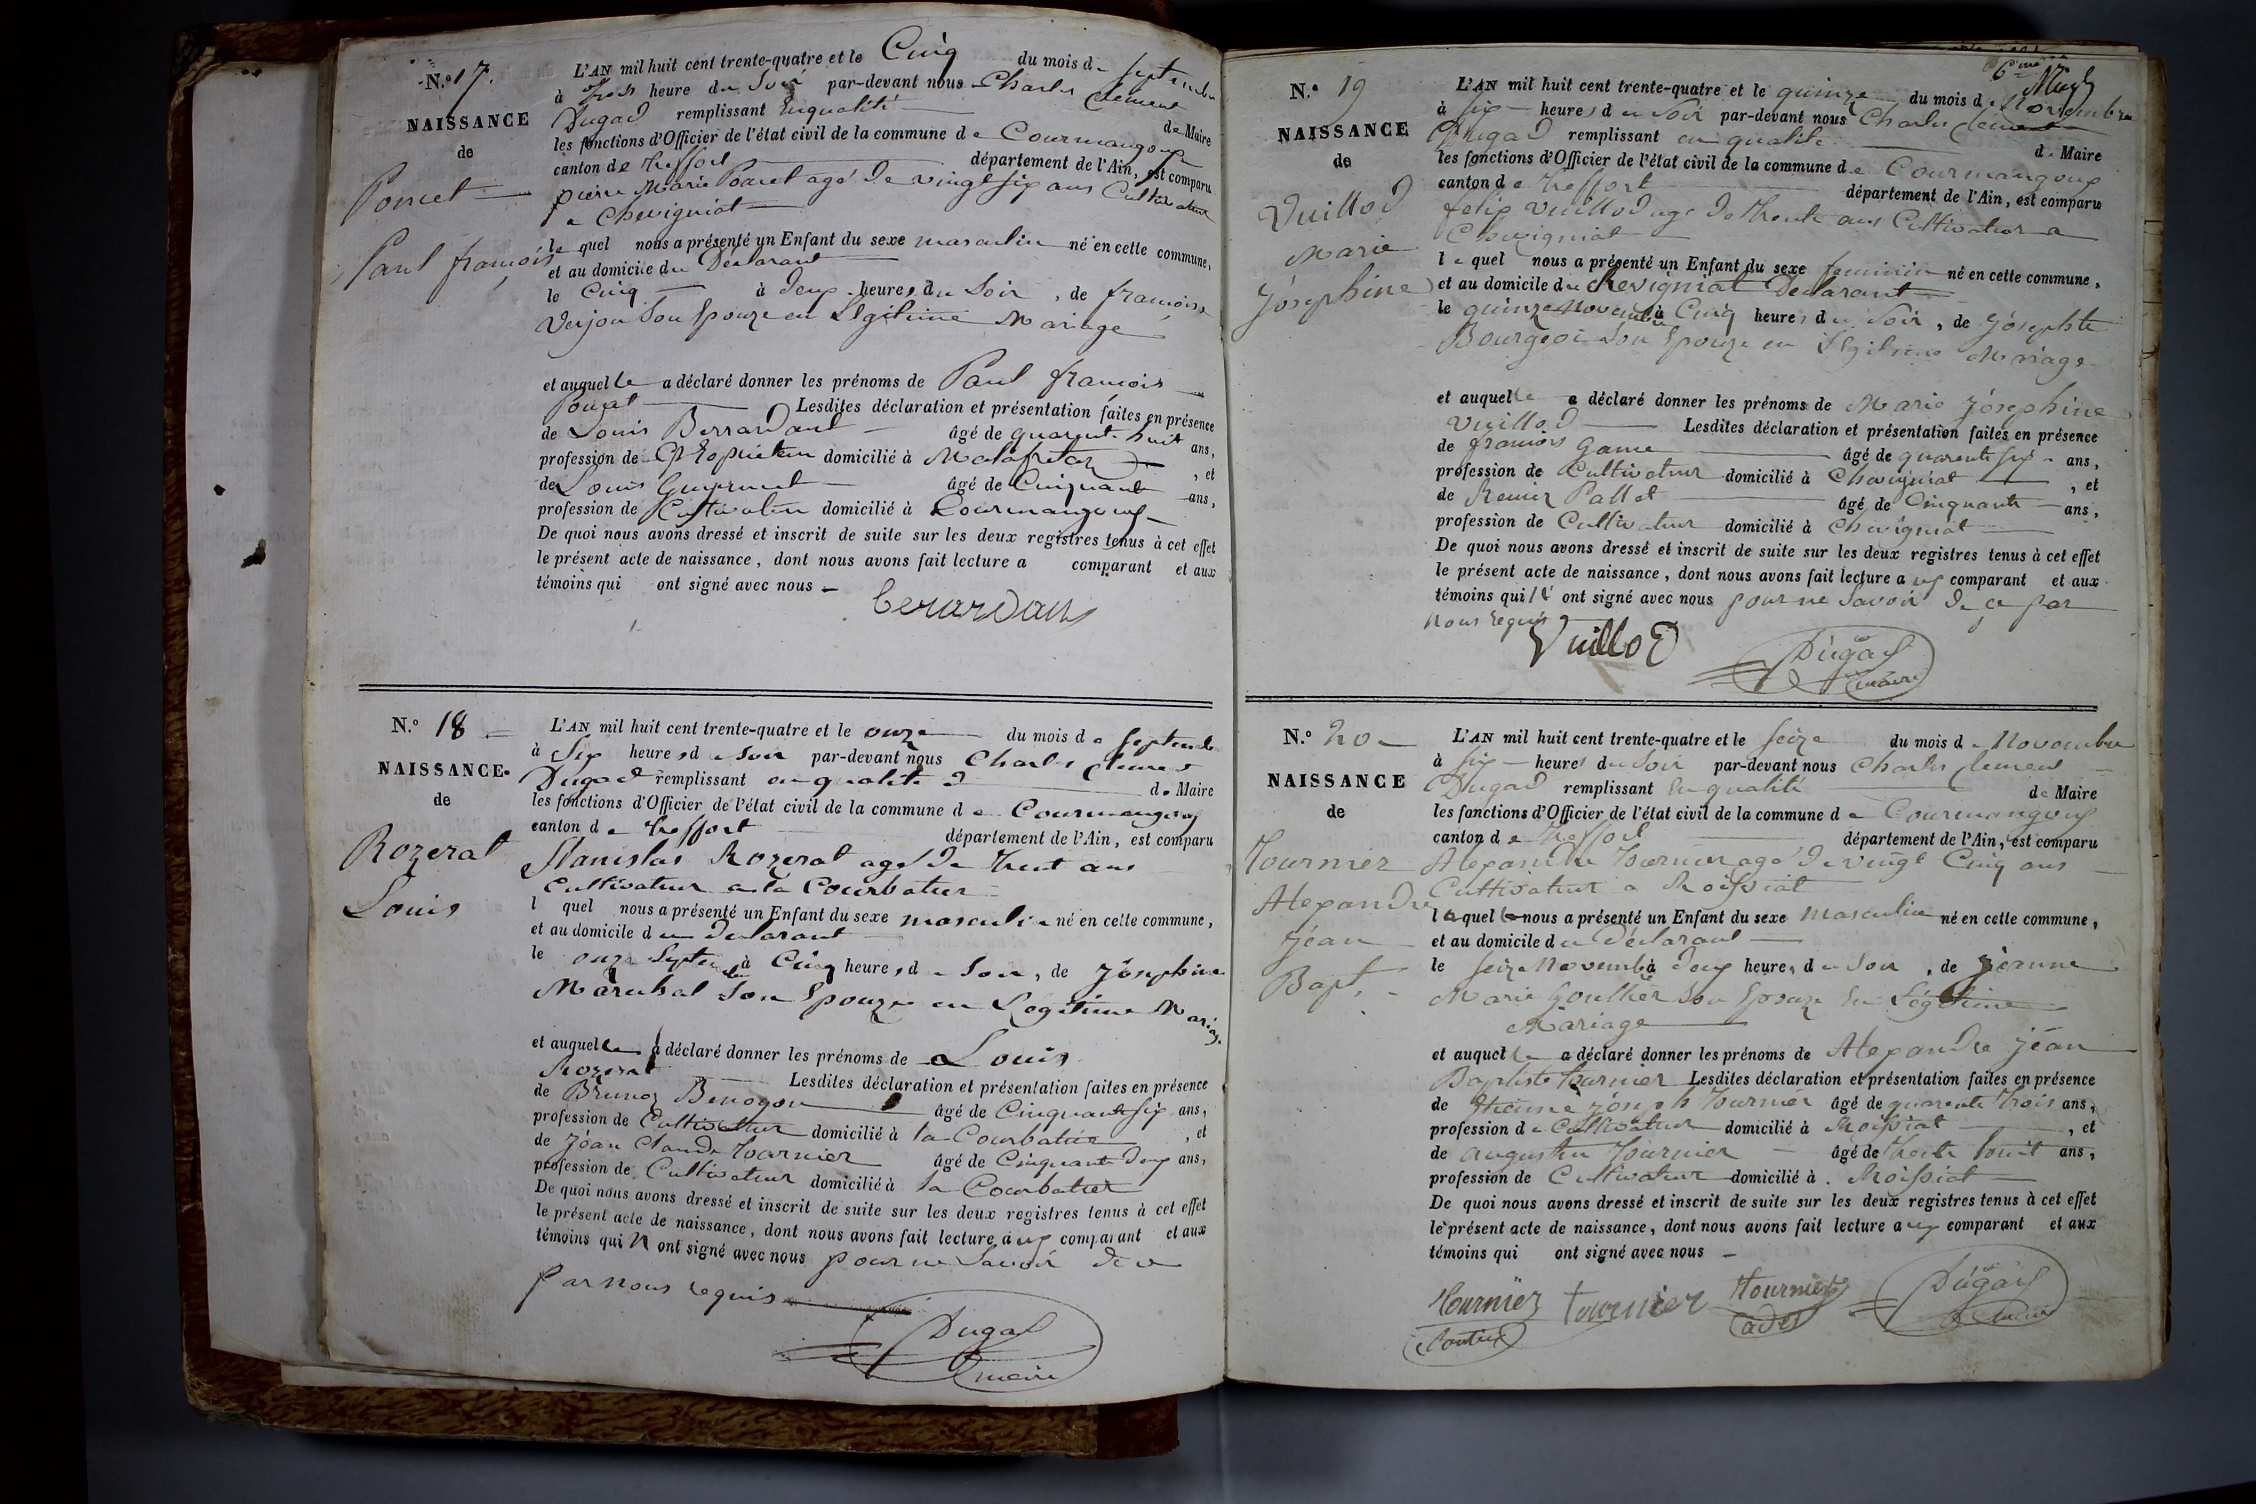 N.º 17.
NAISSANCE
de
Poncet
Paul françois
L'AN mil huit cent trente-quatre et le Cinq du mois de septembre
à trois heure du Soir par-devant nous Charles Clément
Dugad remplissant En qualité de Maire
les fonctions d'Officier de l'état civil de la commune de Courmangoux
canton de treffort département de l'Ain, est comparu
pierre Marie Poncet agé de vingt six ans Cultivateur
a Chevigniat
le quel nous a présenté un Enfant du sexe masculin né en cette commune,
et au domicile du Declarant
le Cinq à deux heures du Soir, de françoise
Verjou Son Epouze en Légitime Mariage
et auquel le a déclaré donner les prénoms de Paul françois
Poncet Lesdites déclaration et présentation faites en présence
de Louis Berrardant âgé de quarente huit ans,
profession de Propriétaire domicilié à Malafretaz, et
de Louis Guyennet âgé de Cinquante ans,
profession de Cultivateur domicilié à Courmangoux
De quoi nous avons dressé et inscrit de suite sur les deux registres tenus à cet effet
le présent acte de naissance, dont nous avons fait lecture a comparant et aux
témoins qui ont signé avec nous
berardan
N.º 18
NAISSANCE.
de
Rozerat
Louis
L'AN mil huit cent trente-quatre et le onze du mois de septembre
à Six heures du Soir par-devant nous Charles Clement
Dugad remplissant en qualité d de Maire
les fonctions d'Officier de l'état civil de la commune de Courmangoux
canton de treffort département de l'Ain, est comparu
Stanislas Rozerat agé de trent ans
Cultivateur a la Courbatier
l quel nous a présenté un Enfant du sexe masculin né en cette commune,
et au domicile du declarant
le onze Septembre à Cinq heures du Soir, de Joséphine
Marechal Son Epouze en Legitime Mariage
et auquel le a déclaré donner les prénoms de Louis
Rozerat Lesdites déclaration et présentation faites en présence
de Brunoz Benogon âgé de Cinquante six ans,
profession de Cultivateur domicilié à la Courbatier, et
de Jean Claude tournier âgé de Cinquante deux ans,
profession de Cultivateur domicilié à la Courbatier
De quoi nous avons dressé et inscrit de suite sur les deux registres tenus à cet effet
le présent acte de naissance, dont nous avons fait lecture à ux comparant et aux
témoins qui n ont signé avec nous pour ne Savoir de ce
par nous requis
Dugad
maire
6me
N.º 19
NAISSANCE
de
Vuillod
Marie
Joséphine
L'AN mil huit cent trente-quatre et le quinze du mois de Novembre
à six heures du Soir par-devant nous Charles Clément
Dugad remplissant en qualité de Maire
les fonctions d'Officier de l'état civil de la commune de Courmangoux
canton de treffort département de l'Ain, est comparu
felix Vuillod agé de trente ans Cultivateur a
Chevigniat
le quel nous a présenté un Enfant du sexe feminin né en cette commune,
et au domicile du Chevigniat Declarant
le quinze Novembre à Cinq heures du Soir, de Josephte
Bourgeoi Son Epouze en Légitime Mariage
et auquel le a déclaré donner les prénoms de Marie Joséphine
Vuillod Lesdites déclaration et présentation faites en présence
de françois Game âgé de quarente six ans,
profession de Cultivateur domicilié à Chevigniat, et
de Remiz Pallet âgé de Cinquante ans,
profession de Cultivateur domicilié à Chevigniat
De quoi nous avons dressé et inscrit de suite sur les deux registres tenus à cet effet
le présent acte de naissance, dont nous avons fait lecture a ux comparant et aux
témoins qui ont signé avec nous pour ne Savoir de ce par
nous requis
Vuillod
Dugad
maire
N.º 20
NAISSANCE
de
tournier
Alexandre
Jéan
Bapt.
L'AN mil huit cent trente-quatre et le seize du mois de Novembre
à six heures du Soir par-devant nous Charles Clement
Dugad remplissant En qualité de Maire
les fonctions d'Officier de l'état civil de la commune de Courmangoux
canton de treffort département de l'Ain, est comparu
Alexandre tournier agé de vingt Cinq ans
Cultivateur a Roissiat
le quel nous a présenté un Enfant du sexe masculin né en cette commune,
et au domicile du Déclarant
le seize Novembre à deux heures du Soir, de Jéanne
Marie Gouthier Son Epouze En Légitime
Mariage
et auquel le a déclaré donner les prénoms de Alexandre Jéan
Baptiste tournier Lesdites déclaration et présentation faites en présence
de Etienne Joseph tournier âgé de quarente trois ans,
profession de Cultivateur domicilié à Roissiat, et
de augustin tournier âgé de trente huit ans,
profession de Cultivateur domicilié à Roissiat
De quoi nous avons dressé et inscrit de suite sur les deux registres tenus à cet effet
le présent acte de naissance, dont nous avons fait lecture a ux comparant et aux
témoins qui ont signé avec nous
tournier tournier tournier
cadet
Dugad
maire